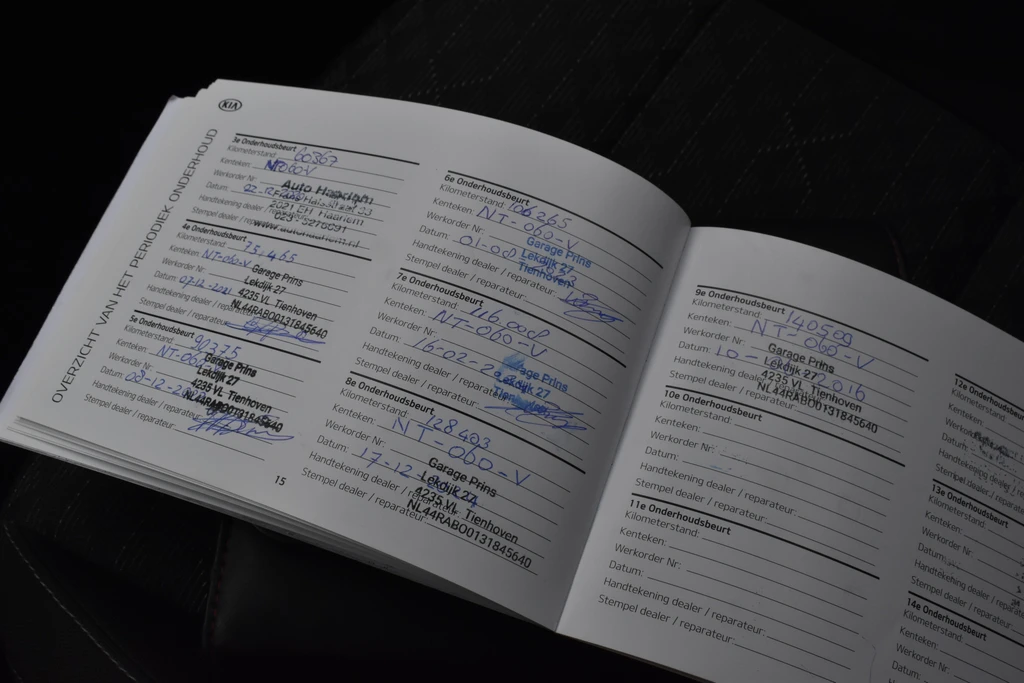 KIA
OVERZICHT VAN HET PERIODIEK ONDERHOUD
3e Onderhoudsbeurt
Kilometerstand: 60367
Kenteken: NT060V
Werkorder Nr:
Auto Haarlem
Datum: 02-12
2021 EH Haarlem
Handtekening dealer / reparateur:
023-5276091
Stempel dealer / reparateur:
www.autohaarlem.nl
4e Onderhoudsbeurt
Kilometerstand: 75.465
Kenteken: NT-060-V
Werkorder Nr:
Garage Prins
Datum: 07-12-2021
Lekdijk 27
Handtekening dealer / reparateur:
4235 VL Tienhoven
Stempel dealer / reparateur:
NL44RABO0131845640
5e Onderhoudsbeurt
Kilometerstand: 91375
Kenteken: NT-060-V
Werkorder Nr:
Garage Prins
Datum: 08-12-
Lekdijk 27
Handtekening dealer / reparateur:
4235 VL Tienhoven
Stempel dealer / reparateur:
NL44RABO0131845640
15
6e Onderhoudsbeurt
Kilometerstand: 106.265
Kenteken: NT-060-V
Werkorder Nr:
Garage Prins
Datum: 01-08
Lekdijk 27
Handtekening dealer / reparateur:
Tienhoven
Stempel dealer / reparateur:
7e Onderhoudsbeurt
Kilometerstand: 116.008
Kenteken: NT-060-V
Werkorder Nr:
Datum: 16-02-2
Garage Prins
Handtekening dealer / reparateur:
Lekdijk 27
Stempel dealer / reparateur:
Tienhoven
8e Onderhoudsbeurt
Kilometerstand: 128403
Kenteken: NT-060-V
Werkorder Nr:
Garage Prins
Datum: 17-12-
Lekdijk 27
Handtekening dealer / reparateur:
4235 VL Tienhoven
Stempel dealer / reparateur:
NL44RABO0131845640
9e Onderhoudsbeurt
Kilometerstand: 140509
Kenteken: NT-060-V
Werkorder Nr:
Garage Prins
Datum: 10- 2016
Lekdijk 27
Handtekening dealer / reparateur:
4235 VL Tienhoven
Stempel dealer / reparateur:
NL44RABO0131845640
10e Onderhoudsbeurt
Kilometerstand:
Kenteken:
Werkorder Nr:
Datum:
Handtekening dealer / reparateur:
Stempel dealer / reparateur:
11e Onderhoudsbeurt
Kilometerstand:
Kenteken:
Werkorder Nr:
Datum:
Handtekening dealer / reparateur:
Stempel dealer / reparateur:
12e Onderhoudsbeurt
Kilometerstand:
Kenteken:
Datum:
Handtekening dealer
Stempel dealer /
13e Onderhoudsbeurt
Kilometerstand:
Kenteken:
Werkorder Nr:
Datum:
Handtekening dealer /
Stempel dealer / repa
14e Onderhoudsbeurt
Kilometerstand:
Kenteken:
Werkorder Nr:
Datum: